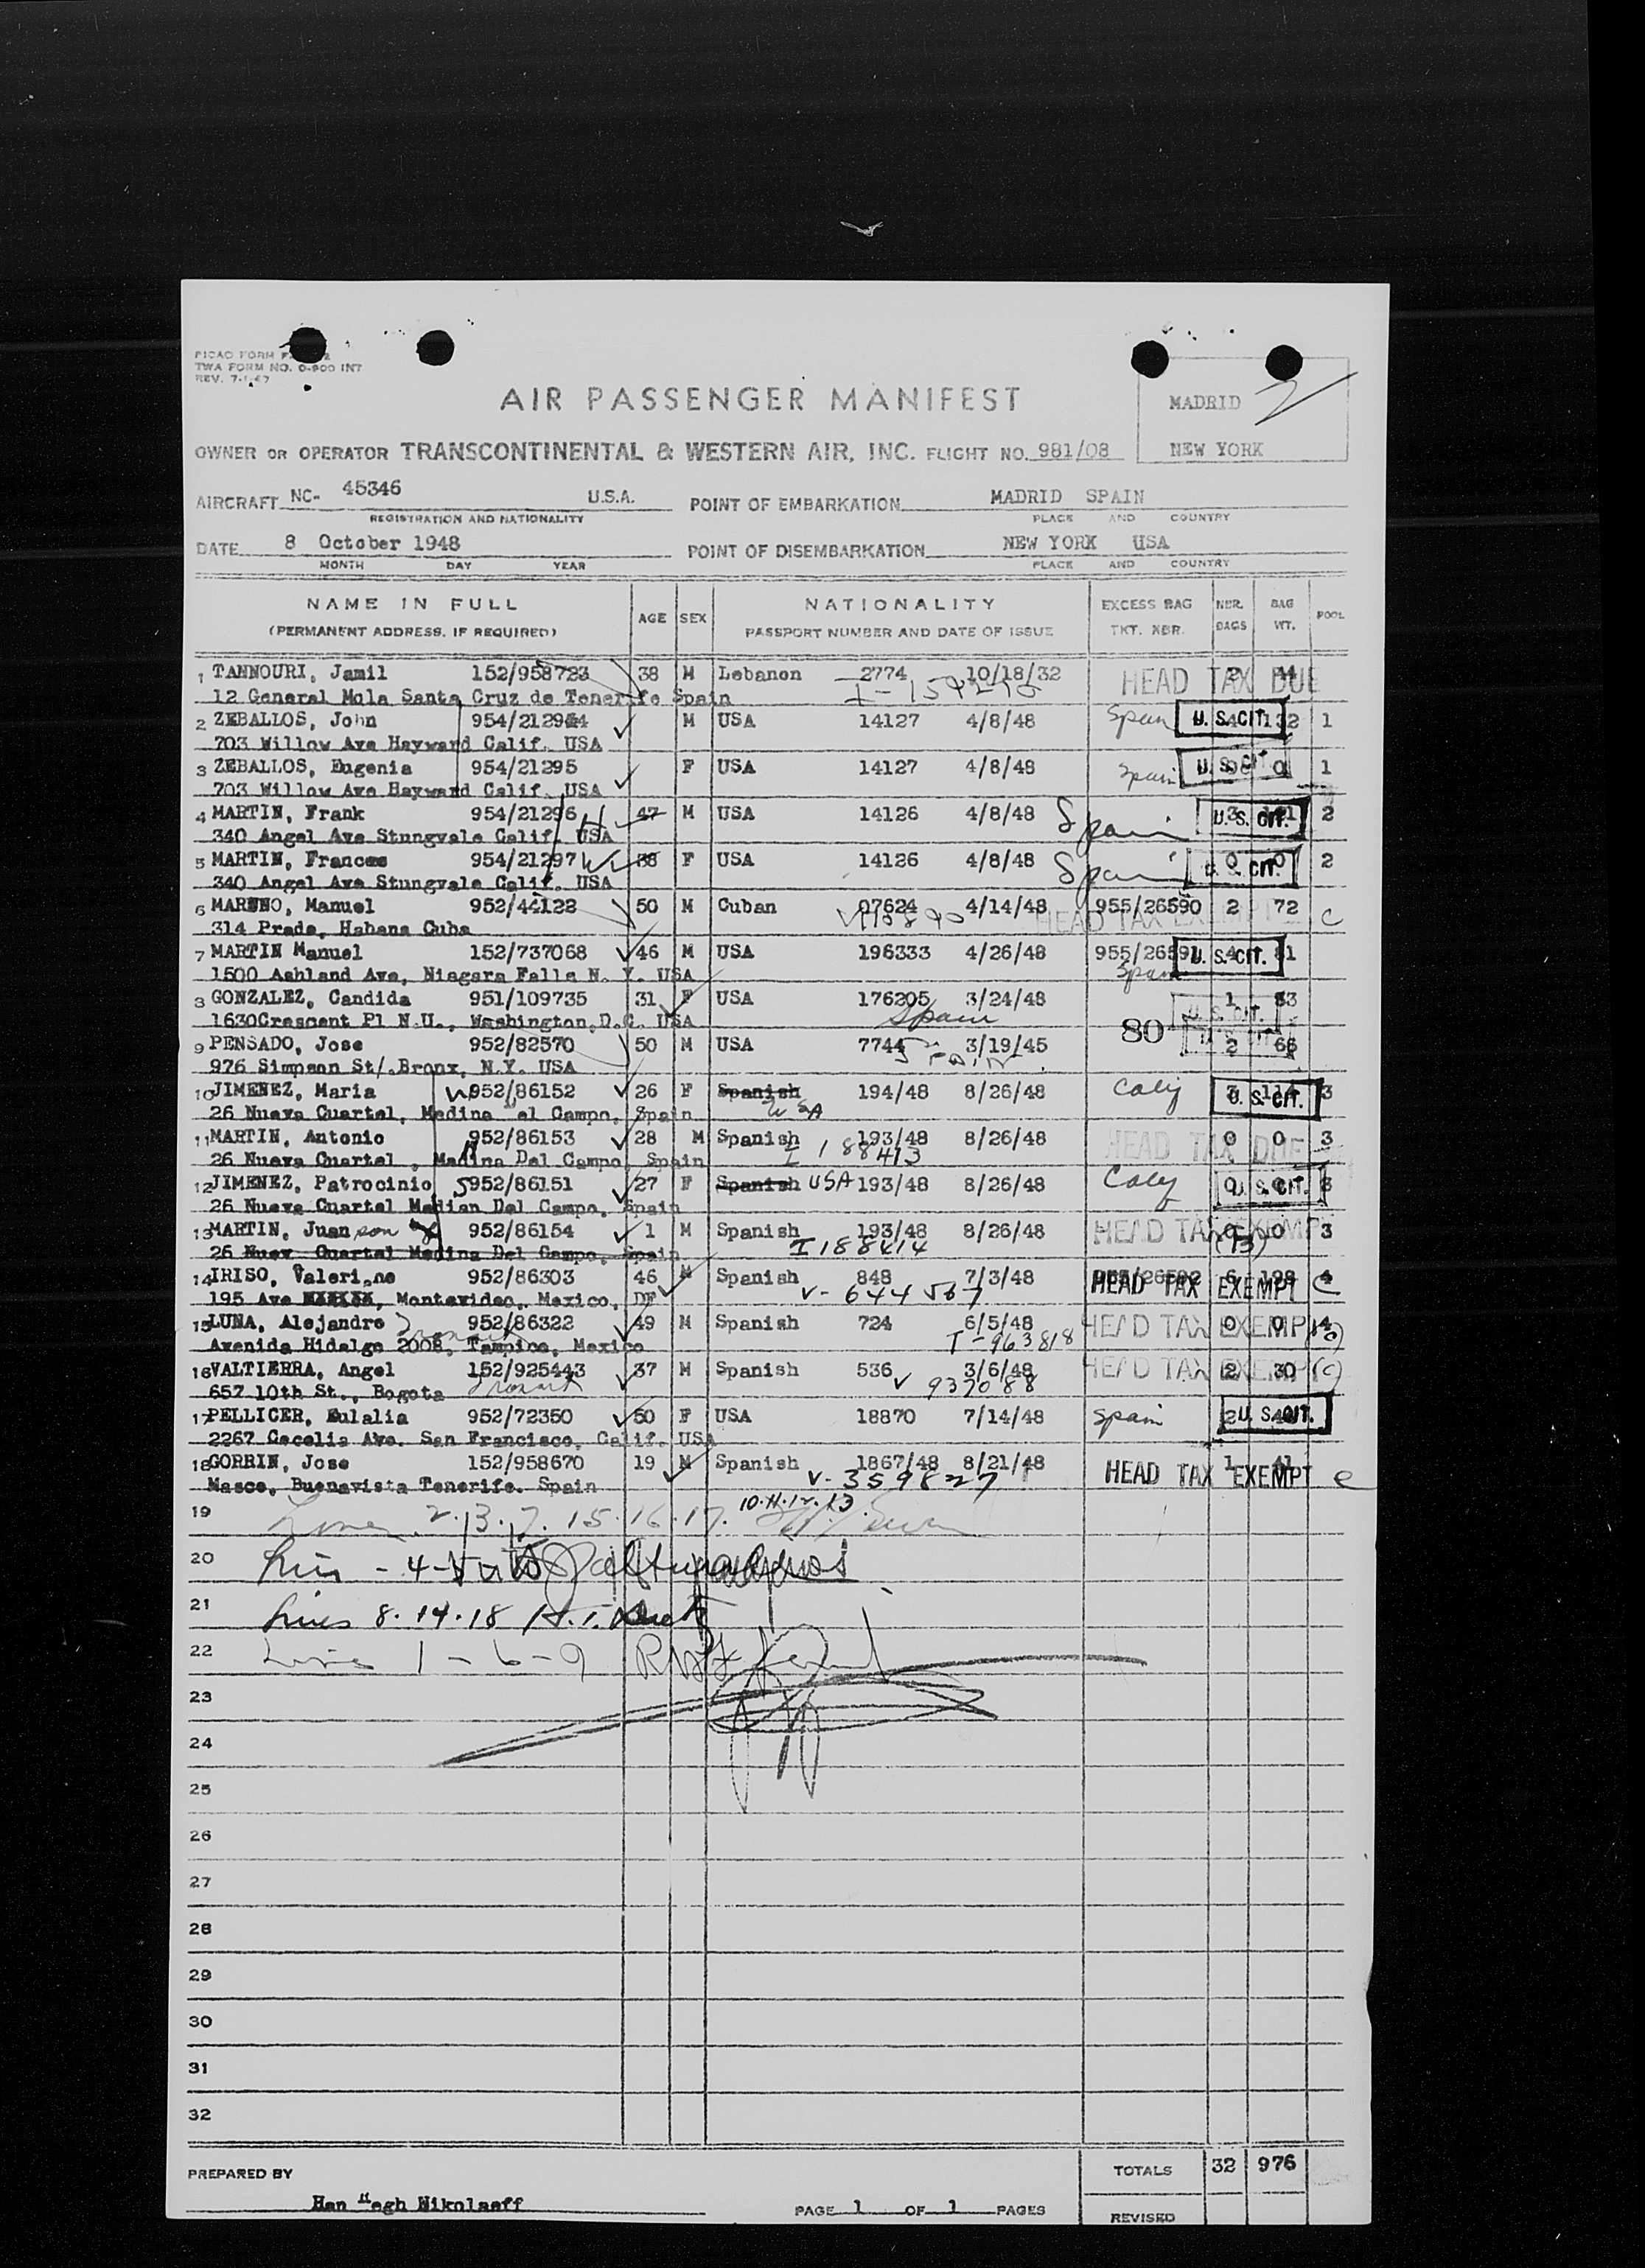 PICAO FORM
TWA FORM NO. 0-900 INT
REV. 7-1-47
AIR PASSENGER MANIFEST
MADRID 2
OWNER OR OPERATOR TRANSCONTINENTAL & WESTERN AIR, INC. FLIGHT NO. 981/08 NEW YORK
AIRCRAFT NC- 45346 U.S.A. POINT OF EMBARKATION MADRID SPAIN
REGISTRATION AND NATIONALITY PLACE AND COUNTRY
DATE 8 October 1948 POINT OF DISEMBARKATION NEW YORK USA
MONTH DAY YEAR PLACE AND COUNTRY
NAME IN FULL AGE SEX NATIONALITY EXCESS BAG NBR. BAG POOL
(PERMANENT ADDRESS, IF REQUIRED) PASSPORT NUMBER AND DATE OF ISSUE TKT. NBR. BAGS WT.
1 TANNOURI, Jamil 152/958723 38 M Lebanon 2774 10/18/32 HEAD TAX DUE 2
12 General Mola Santa Cruz de Tenerife Spain
2 ZEBALLOS, John 954/21294 M USA 14127 4/8/48 Spain U. S. CIT. 4 132 1
703 Willow Ave Hayward Calif. USA
3 ZEBALLOS, Eugenia 954/21295 F USA 14127 4/8/48 Spain U. S. CIT. 0 0 1
703 Willow Ave Hayward Calif. USA
4 MARTIN, Frank 954/21296 47 M USA 14126 4/8/48 Spain U. S. CIT. 3 2
340 Angel Ave Stungvale Calif. USA
5 MARTIN, Frances 954/21297 38 F USA 14126 4/8/48 Spain U. S. CIT. 0 0 2
340 Angel Ave Stungvale Calif. USA
6 Manuel 952/44122 50 M Cuban 07624 4/14/48 955/26590 2 72 HEAD TAX EXEMPT C
314 Prado, Habana Cuba
7 MARTIN Manuel 152/737068 46 M USA 196333 4/26/48 955/26591 U. S. CIT. 4 81
1500 Ashland Ave, Niagara Falls N. Y. USA Spain
8 GONZALEZ, Candida 951/109735 31 F USA 176205 3/24/48 1 33 U. S. CIT.
1630Crescent Pl N.U., Washington,D.C. USA Spain 80
9 PENSADO, Jose 952/82570 50 M USA 7744 3/19/45 2 66 U. S. CIT.
976 Simpson St/.Bronx, N.Y. USA Spain
10 JIMENEZ, Maria 952/86152 26 F Spanish 194/48 8/26/48 U. S. CIT. 3
26 Nueva Cuartel, Medina el Campo, Spain USA
11 MARTIN, Antonio 952/86153 28 M Spanish 193/48 8/26/48 HEAD TAX DUE 0 0 3
26 Nueva Cuartel , Medina Del Campo, Spain I 188413
12 JIMENEZ, Patrocinio 952/86151 27 F Spanish USA 193/48 8/26/48 U. S. CIT. 0 3
26 Nueva Cuartel Median Del Campo, Spain
13 MARTIN, Juan son 952/86154 1 M Spanish 193/48 8/26/48 HEAD TAX EXEMPT 0 0 3
26 Nuev Cuartel Medina Del Campo, Spain I 188414 (13)
14 IRISO, Valeriano 952/86303 46 M Spanish 848 7/3/48 955/26592 6 4
195 Ave Montevideo, Mexico, DF V- 644567 HEAD TAX EXEMPT C
15 LUNA, Alejandro 952/86322 49 M Spanish 724 6/5/48 HEAD TAX EXEMPT 0 0 4 (c)
Avenida Hidalgo 2008, Tampico, Mexico T-963818
16 VALTIERRA, Angel 152/925443 37 M Spanish 536 3/6/48 HEAD TAX EXEMPT 2 30 (c)
657 10th St., Bogota Transit V 937088
17 PELLICER, Eulalia 952/72350 50 F USA 18870 7/14/48 Spain 2 U. S. CIT.
2267 Cecelia Ave. San Francisco, Calif. USA
18 GORRIN, Jose 152/958670 19 M Spanish 1867/48 8/21/48 HEAD TAX EXEMPT 1 41 c
Masco, Buenavista Tenerife. Spain V- 359827
19 Lines 2.3.7.15.16.17. 10.11.12.13
20 Lines - 4-5
21 Lines 8.14.18
22 Lines 1-6-9
23
24
25
26
27
28
29
30
31
32
TOTALS 32 976
PREPARED BY
Han Hegh Nikolaeff PAGE 1 OF 1 PAGES REVISED